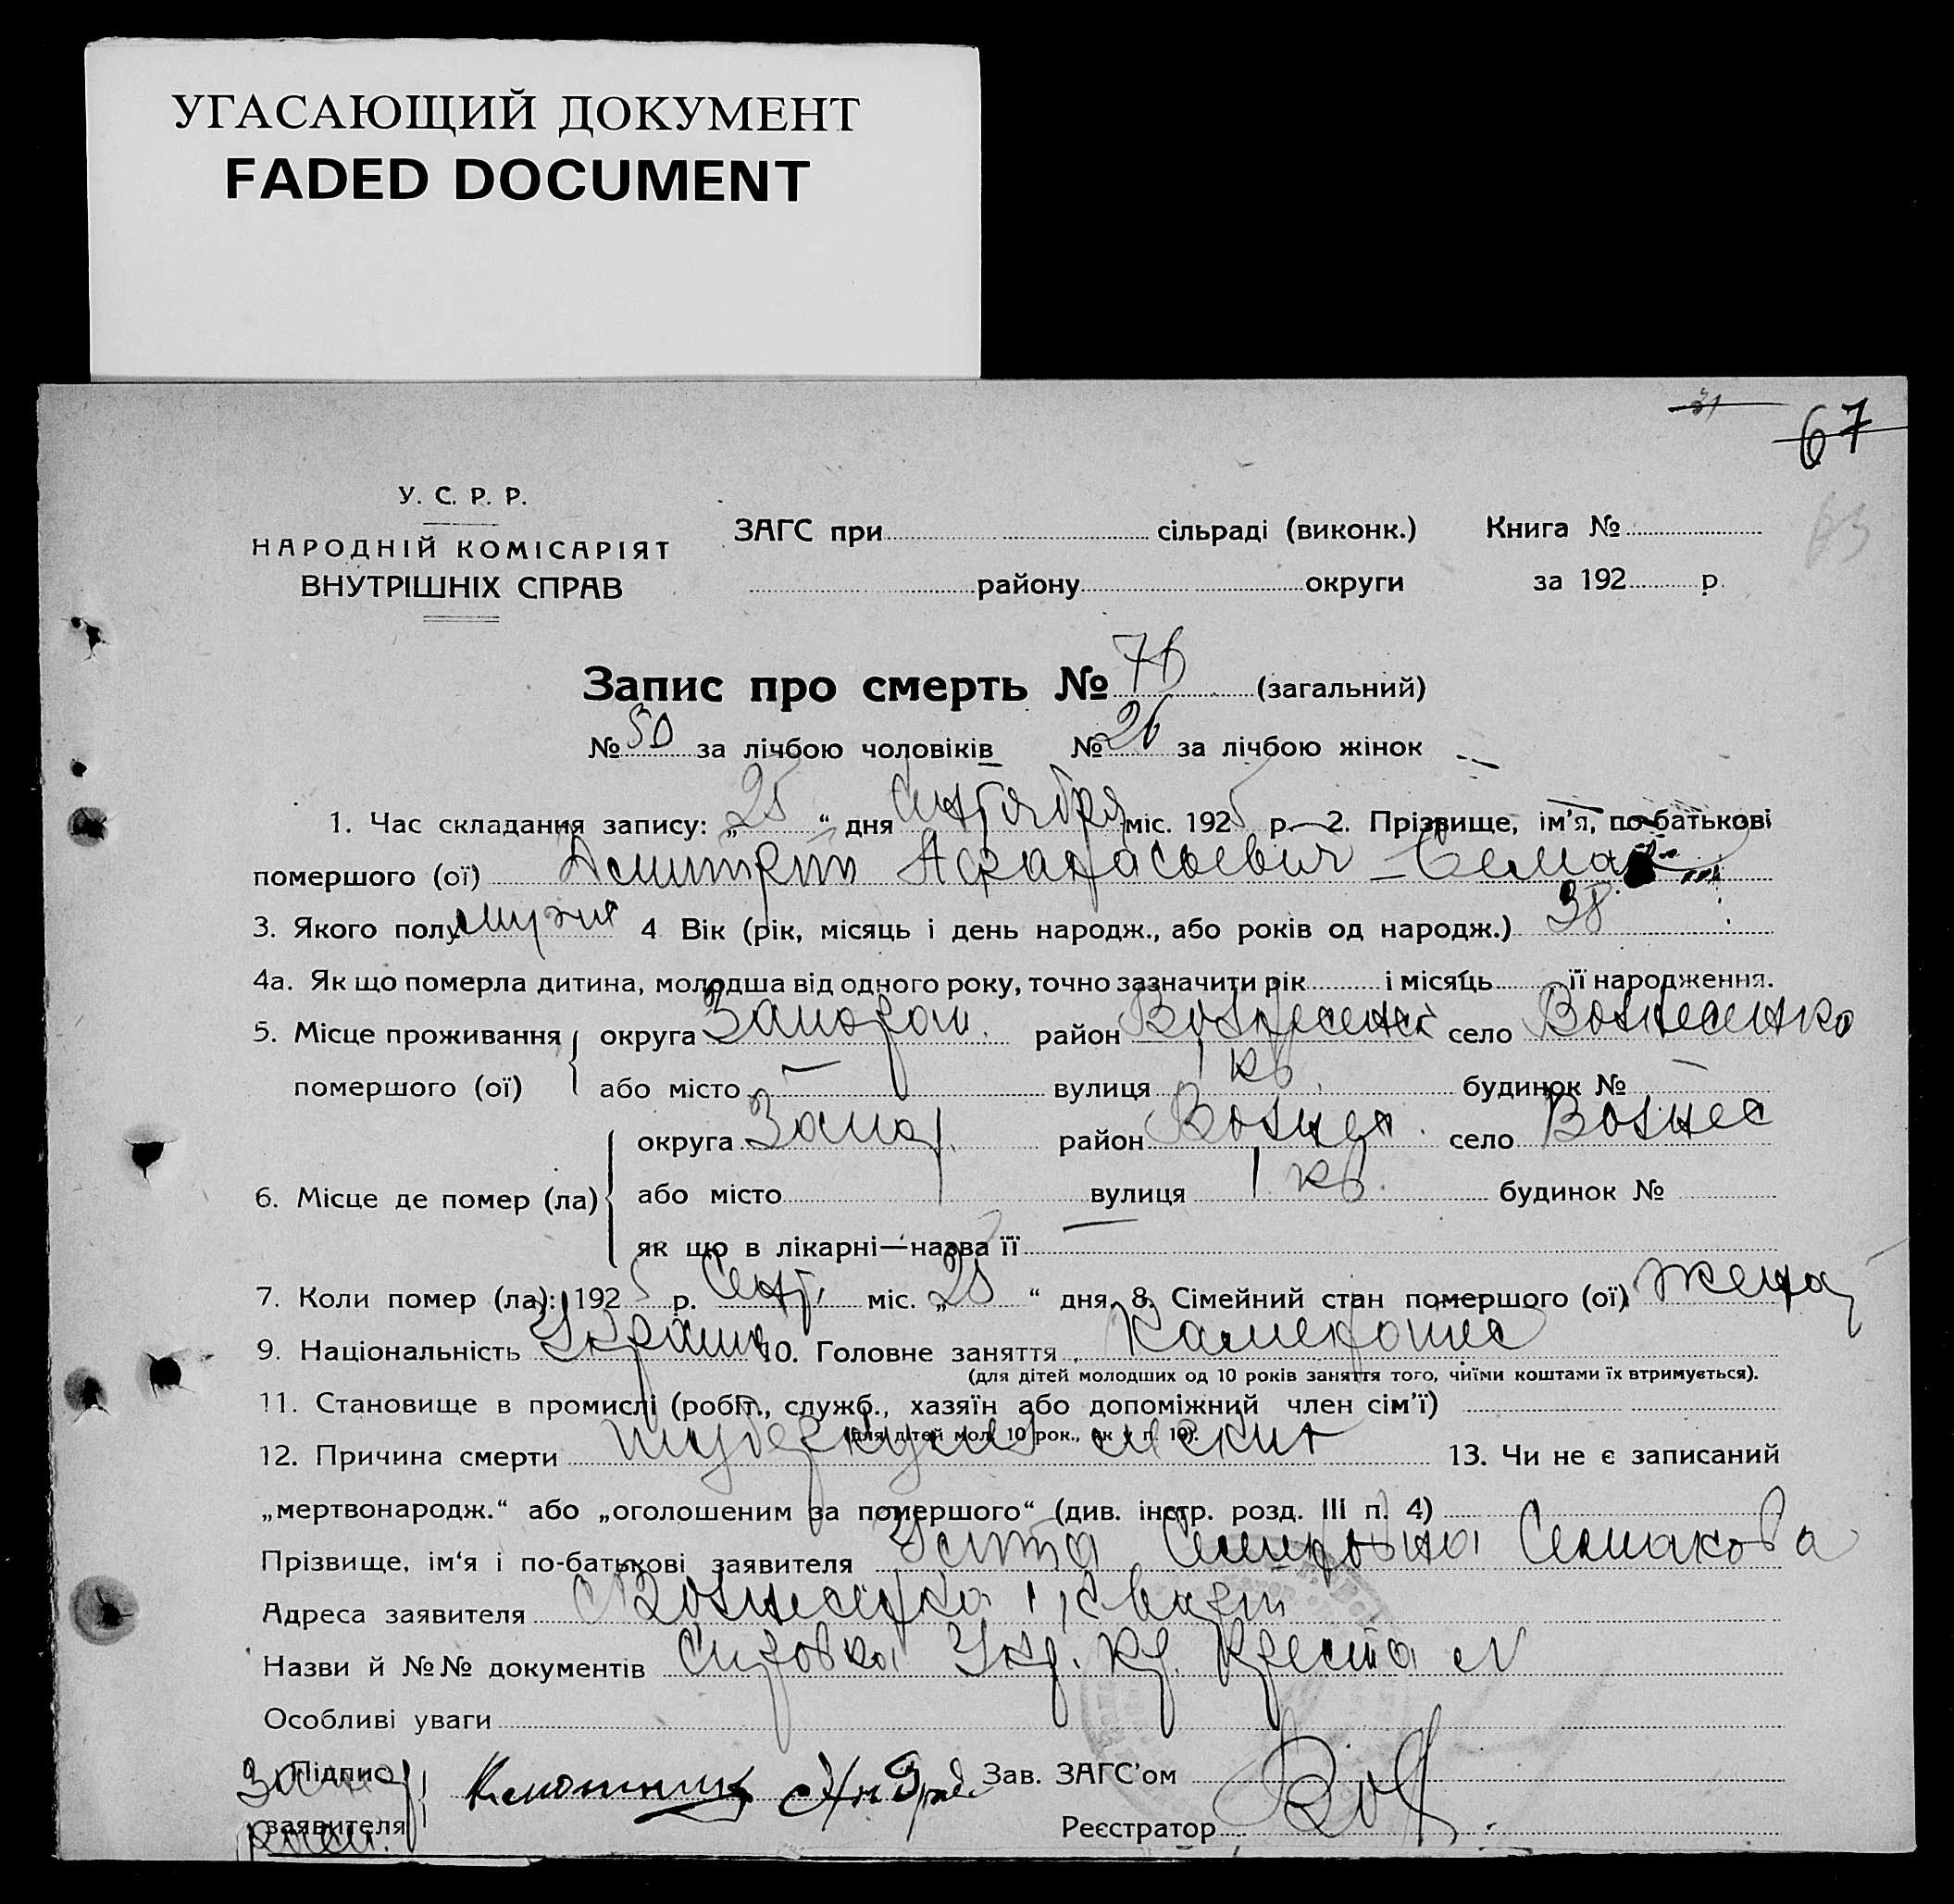 УГАСАЮЩИЙ ДОКУМЕНТ
FADED DOCUMENT
31
67
63
У. С. Р. Р.
НАРОДНІЙ КОМІСАРІЯТ
ВНУТРІШНІХ СПРАВ
ЗАГС при сільраді (виконк.) Книга №
району округи за 192 р.
Запис про смерть № 76 (загальний)
№ 50 за лічбою чоловіків № 26 за лічбою жінок
1. Час складання запису: „25“ дня Сентября міс. 1925 р. 2. Прізвище, ім'я, по-батькові
помершого (ої) Дмитрий Афанасьевич - Семак
3. Якого полу 4 Вік (рік, місяць і день народж., або років од народж.) 38
4а. Як що померла дитина, молодша від одного року, точно зазначити рік і місяць її народження.
5. Місце проживання округа Запорож. район Вознесенск село Вознесенко
помершого (ої) або місто — вулиця 1 кв. будинок № —
округа Запор. район Вознес. село Вознес
6. Місце де помер (ла) або місто вулиця 1 кв. будинок №
як що в лікарні—назва її —
7. Коли помер (ла): 1925 р. Сент. міс. „25“ дня. 8. Сімейний стан помершого (ої) женат
9. Національність Украин 10. Головне заняття
(для дітей молодших од 10 років заняття того, чиїми коштами їх втримується).
11. Становище в промислі (робіт., служб., хазяїн або допоміжний член сім'ї)
(для дітей мол. 10 рок., як у п. 10).
12. Причина смерти туберкулез 13. Чи не є записаний
„мертвонародж.“ або „оголошеним за помершого“ (див. інстр. розд. III п. 4)
Прізвище, ім'я і по-батькові заявителя Семакова
Адреса заявителя Вознесенка 1 кварт
Назви й №№ документів Справка Укр. Кр. Креста №
Особливі уваги
Підпис Зав. ЗАГС'ом
заявителя Реєстратор